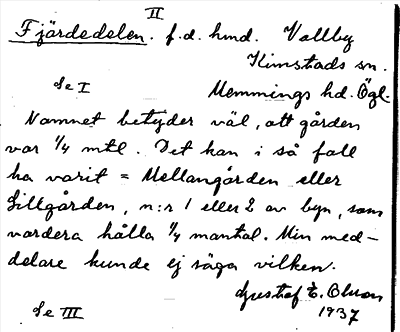 II
Fjärdedelen. f.d. hmd. Vallby
Kimstads sn.
Se I Memmings hd. Ögl.
Namnet betyder väl, att gården
var 1/4 mtl. Det kan i så fall
ha varit = Mellangården eller
Lillgården, n:r 1 eller 2 av byn, som
vardera hålla 1/4 mantal. Min med-
delare kunde ej säga vilken.
Gustaf E. Olson
1937
Se III